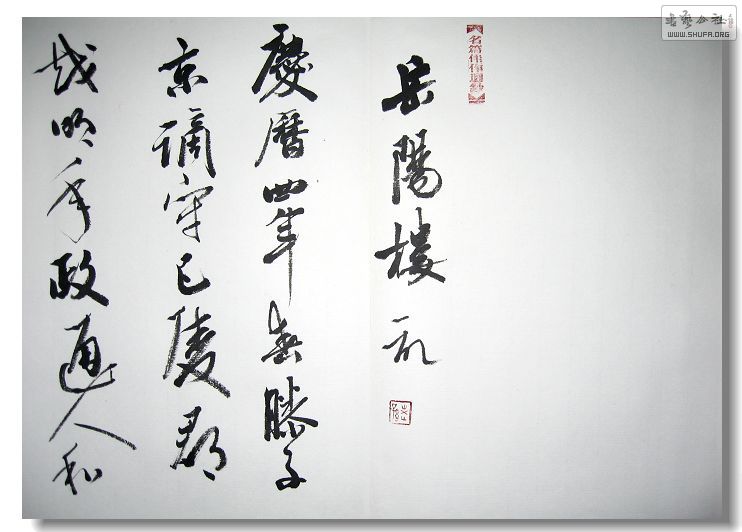 岳陽樓記
慶曆四年春滕子
京謫守巴陵郡
越明年政通人和
名篇佳作選鈔
书艺公社
WWW.SHUFA.ORG